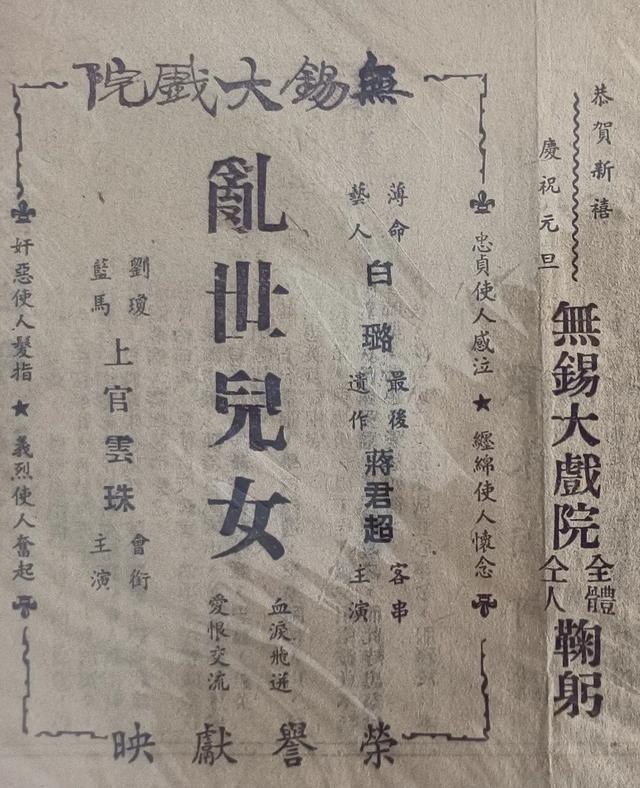 恭賀新禧
慶祝元旦
無錫大戲院
全體
仝人
鞠躬
無錫大戲院
忠貞使人感泣★纏綿使人懷念
薄命
藝人
白璐
最後
遺作
蔣君超
客串
主演
亂世兒女
血淚飛迸
愛恨交流
劉瓊
藍馬
上官雲珠
會銜
主演
奸惡使人髮指★義烈使人奮起
榮譽獻映